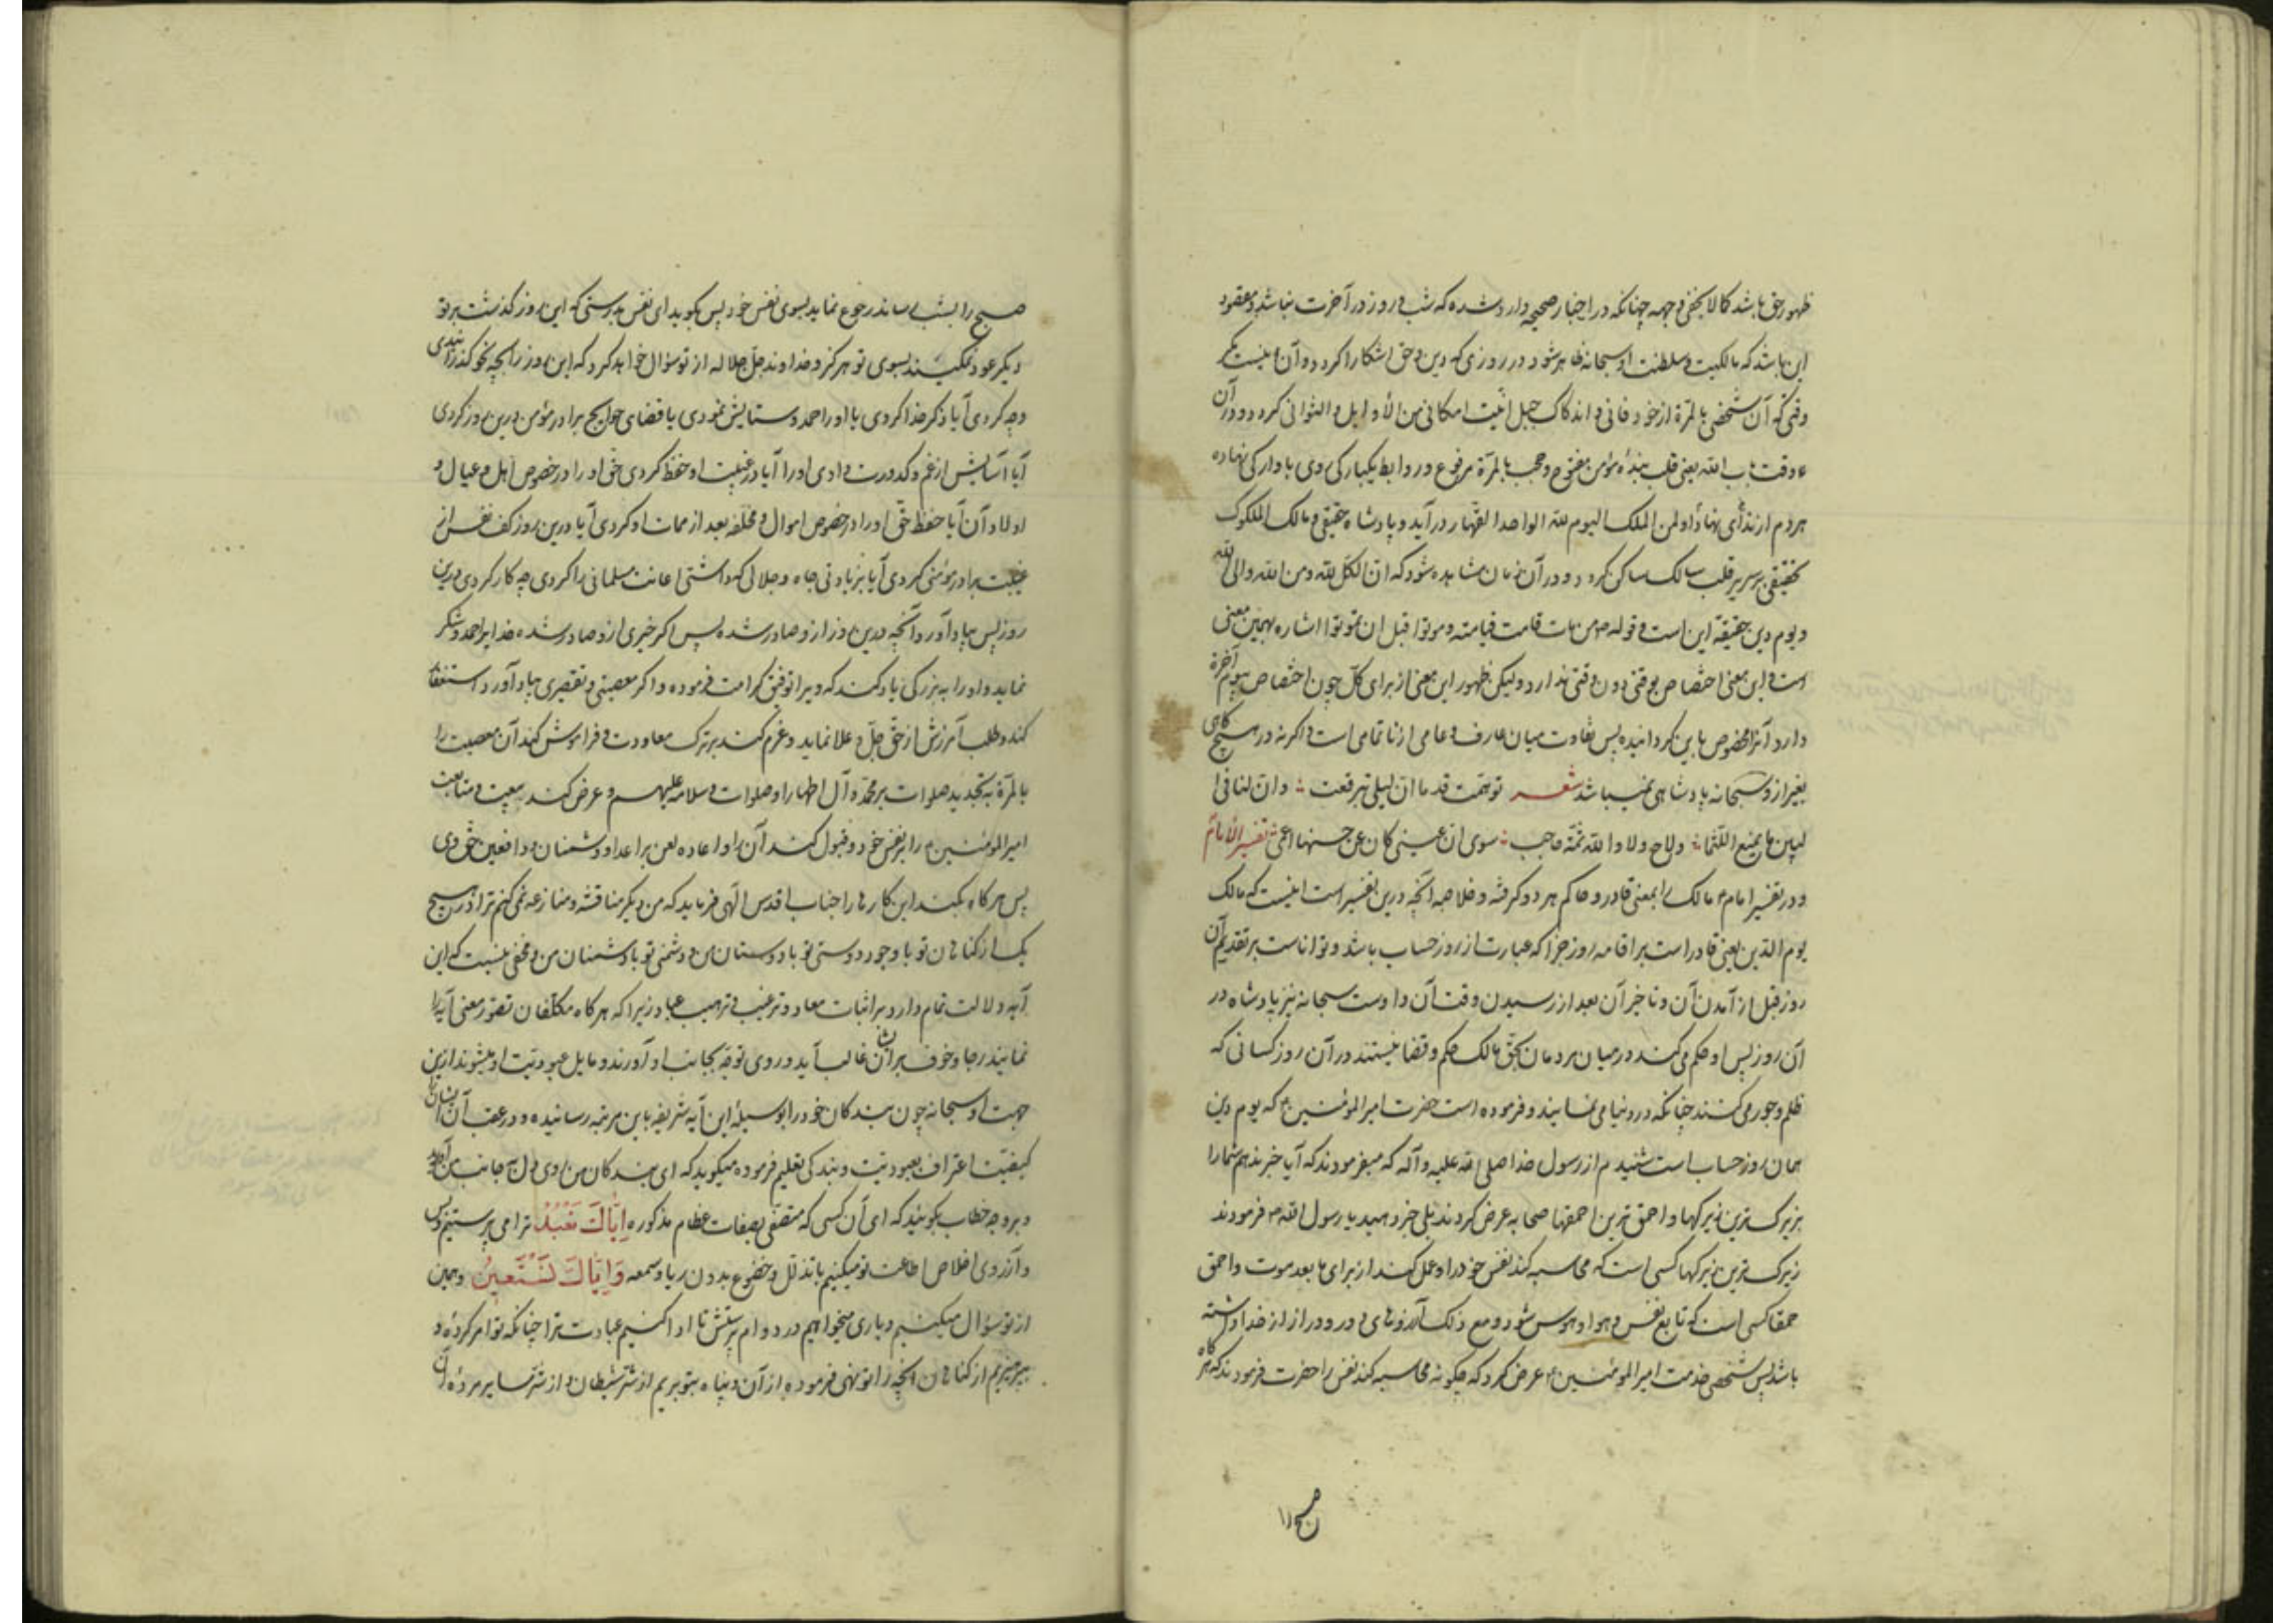 ظهور حق باشد کمالا یخفی وجهه چنانکه در اخبار صحیحه وارد شده که شب و روز در آخرت نباشد و مقصود
این باشد که مالکیت و سلطنت او سبحانه ظاهر شود در روزی که دین حق آشکارا کردد و آن نیست مگر
وقتی که آن شخص بالمرة از خود فانی و اندکاک جبل انیت امکانی من الأوایل و الثوانی کردد و در آن
وقت باب الله یعنی قلب بنده مؤمن مفتوح و حجب بالمرة مرفوع و روابط یکبارکی روی بآوارکی نهاده
هر دم از ندای نهاد او لمن الملک الیوم لله الواحد القهار در آید و پادشاه حقیقی و مالک الملکوک
تحقیقی بر سریر قلب سالک ساکن کردد و در آن زمان مشاهده شود که ان الکل لله و من الله و الی الله
و یوم دین حقیقة این است و قوله ص من مات قامت قیامته و موتوا قبل ان تموتوا اشاره بهمین معنی
است و این معنی اختصاص بوقتی دون وقتی ندارد و لیکن ظهور این معنی از برای کل چون اختصاص بیوم آخرة
دارد آنرا مخصوص باین کردانیده پس تفاوت میان عارف و عامی از ناتمامی است و اکرنه در هیچ کاهی
بغیر از و سبحانه پادشاهی نمیباشد شعر توهمت قدما ان لیلی تبرقعت ؞ و ان لنا فی
لبین ما یمنع اللثما ؞ و لاح و لا و الله ثمه حاجب ؞ سوی ان عینی کان عن حسنها اعمی تفسیر الأمام
و در تفسیر امام ع مالک را بمعنی قادر و حاکم هر دو کرفته و خلاصه آنچه درین تفسیر است اینست که مالک
یوم الدین یعنی قادر است بر اقامه روز جزا که عبارت از روز حساب باشد و تواناست بر تقدیم آن
روز قبل از آمدن آن و تاخیر آن بعد از رسیدن وقت آن و اوست سبحانه نیز پادشاه در
آن روز پس او حکم می کند در میان مردمان بحق مالک حکم و قضا نیستند در آن روز کسانی که
ظلم و جور می کنند چنانکه در دنیا می نمایند و فرموده است حضرت امیر المؤمنین ع که یوم دین
همان روز حساب است شنیدم از رسول خدا صلی الله علیه و آله که میفرمودند که آیا خبر ندهم شما را
بزیرک ترین زیرکها و احمق ترین احمقها صحابه عرض کردند بلی خبر دهید یا رسول الله ص فرمودند
زیرک ترین زیرکها کسی است که محاسبه کند نفس خود را و عمل کند از برای ما بعد موت و احمق
حمقا کسی است که تابع نفس و هوا و هوس شود و مع ذلک آرزوهای دور و دراز از خدا داشته
باشد پس شخصی خدمت امیر المؤمنین ع عرض کرد که چکونه محاسبه کند نفس را حضرت فرمودند که هر کاه
صبح را
صبح را بشب رساند رجوع نماید بسوی نفس خود پس بکوید ای نفس بدرستی که این روز کذشت بر تو
دیکر عود نمیکند بسوی تو هرکز و خداوند جل جلاله از تو سؤال خواهد کرد که این روز را بچه نحو کذرانیدی
و چه کردی آیا ذکر خدا کردی یا او را حمد و ستایش نمودی یا قضای حوایج برادر مؤمن درین روز کردی
آیا آسایش از غم و کدورت دادی او را آیا در غیبت او حفظ کردی حق او را در خصوص اهل و عیال و
اولاد آن آیا حفظ حق او را در خصوص اموال و مخلفه بعد از ممات او کردی آیا درین روز کف نفس از
غیبت برادر مؤمنی کردی آیا بزیادتی جاه و جلالی که داشتی اعانت مسلمانی را کردی چه کار کردی درین
روز پس بیاد آورد آنچه درین روز ازو صادر شده پس اکر خیری ازو صادر شده خدایرا حمد و شکر
نماید و او را به بزرکی یاد کند که ویرا توفیق کرامت فرموده و اکر معصیتی و تقصیری بیاد آورد استغفار
کند و طلب آمرزش از حق جل و علا نماید و عزم کند بر ترک معاودت و فراموش کند آن معصیت را
بالمرة به تجدید صلوات بر محمد و آل اطهار او صلوات و سلامه علیهم و عرض کند بیعت و متابعت
امیر المؤمنین ع را بر نفس خود و قبول کند آن را و اعاده لعن بر اعدا و دشمنان و دافعین حق وی
پس هر کاه بکند این کارها را جناب اقدس الهی فرماید که من دیکر مناقشه و منازعه نمی کنم ترا در هیچ
یک از کناهان تو با وجود دوستی تو با دوستان من و دشمنی تو با دشمنان من و مخفی نیست که این
آیه دلالت تمام دارد بر اثبات معاد و ترغیب و ترهیب عباد زیرا که هر کاه مکلفان تصور معنی آیه را
نمایند رجا و خوف بر ایشان غالب آید و روی توجه بجانب او آورند و مایل عبودیت او میشوند ازین
جهت او سبحانه چون بندکان خود را بوسیلهٔ این آیه شریفه باین مرتبه رسانیده و در عقب آن ایشان را
کیفیت اعتراف بعبودیت و بندکی تعلیم فرموده میکوید که ای بندکان من روی دل بجانب من آورید
و بر وجه خطاب بکوئید که ای آن کسی که متصفی بصفات عظام مذکوره إِيَّاكَ نَعْبُدُ ترا می پرستیم و بس
و از روی اخلاص اطاعت تو میکنیم با تذلل و خضوع بدون ریا و سمعه وَإِيَّاكَ نَسْتَعِينُ و همین
از تو سؤال میکنیم و یاری میخواهیم در دوام پرستش تا ادا کنیم عبادت ترا چنانکه تو امر کردهٔ و
بپرهیزیم از کناهان آنچه را تو نهی فرموده از آن و پناه بتو بریم از شر شیطان و از شر سایر مرده آن